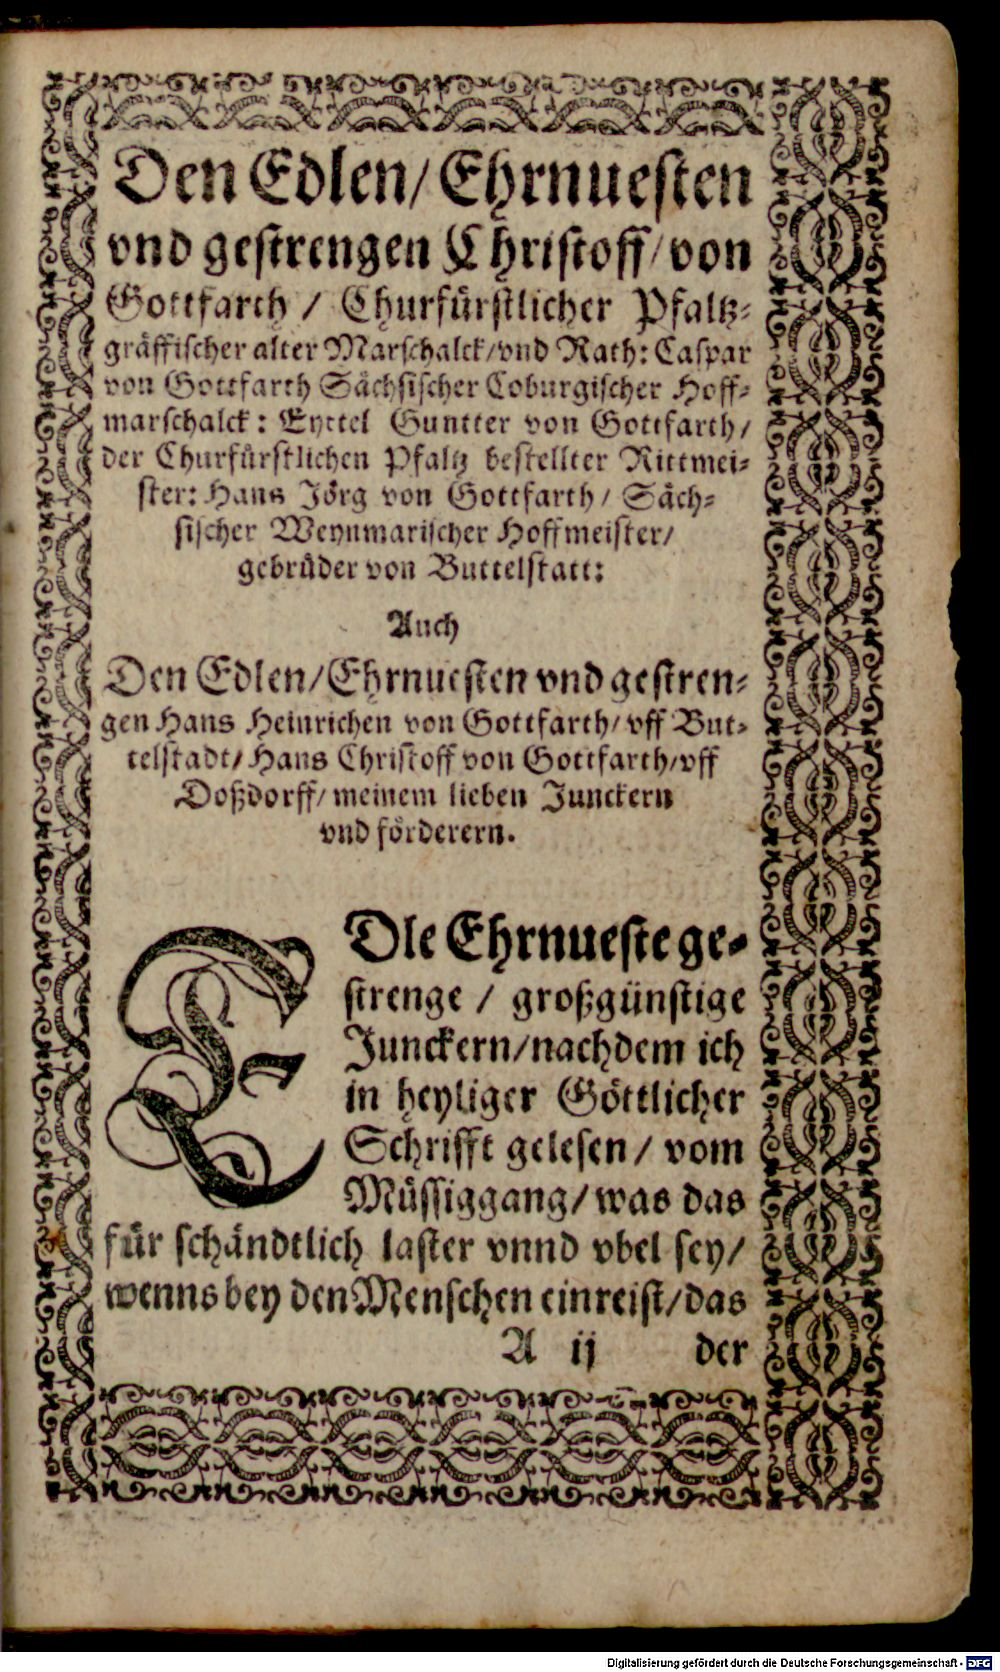 Den Edlen/ Ehrnuesten
vnd gestrengen Christoff/ von
Gottfarth / Churfürstlicher Pfaltz-
gräffischer alter Marschalck/vnd Rath: Caspar
von Gottfarth Sächsischer Coburgischer Hoff-
marschalck: Eyttel Guntter von Gottfarth/
der Churfürstlichen Pfaltz bestellter Rittmei-
ster: Hans Jörg von Gottfarth/ Säch-
sischer Weynmarischer Hoffmeister/
gebrüder von Buttelstatt:
Auch
Den Edlen/Ehrnuesten vnd gestren-
gen Hans Heinrichen von Gottfarth/ vff But-
telstadt/ Hans Christoff von Gottfarth/vff
Doßdorff/ meinem lieben Junckern
vnd förderern.
EDle Ehrnueste ge-
strenge / großgünstige
Junckern/nachdem ich
in heyliger Göttlicher
Schrifft gelesen/ vom
Müssiggang/ was das
für schändtlich laster vnnd vbel sey/
wenns bey den Menschen einreist/das
A ij der
Digitalisierung gefördert durch die Deutsche Forschungsgemeinschaft - DFG